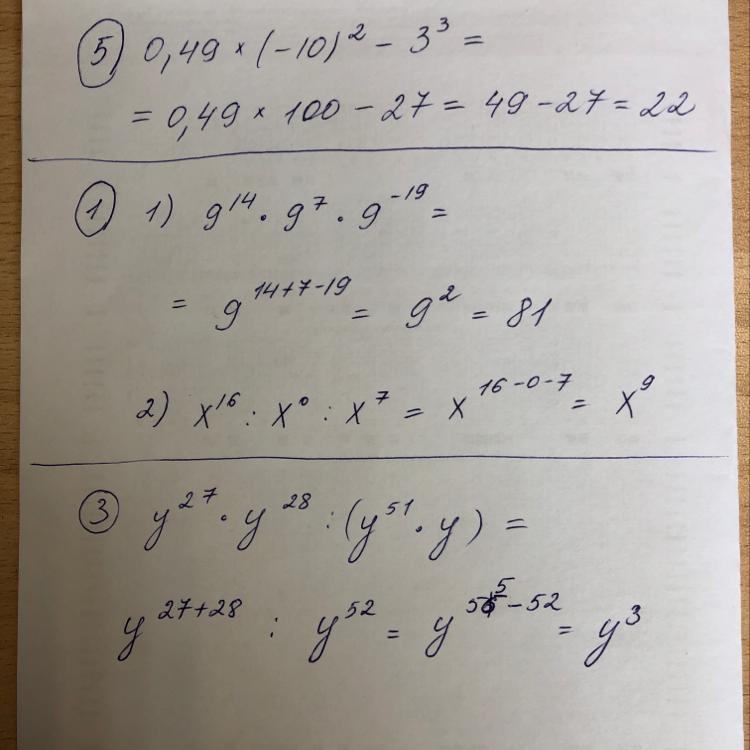 ⑤ 0,49 × (-10)² - 3³ =
= 0,49 × 100 - 27 = 49 - 27 = 22
① 1) 9¹⁴ · 9⁷ · 9⁻¹⁹ =
= 9¹⁴⁺⁷⁻¹⁹ = 9² = 81
2) x¹⁶ : x⁰ : x⁷ = x¹⁶⁻⁰⁻⁷ = x⁹
③ y²⁷ · y²⁸ : (y⁵¹ · y) =
y²⁷⁺²⁸ : y⁵² = y⁵⁵⁻⁵² = y³